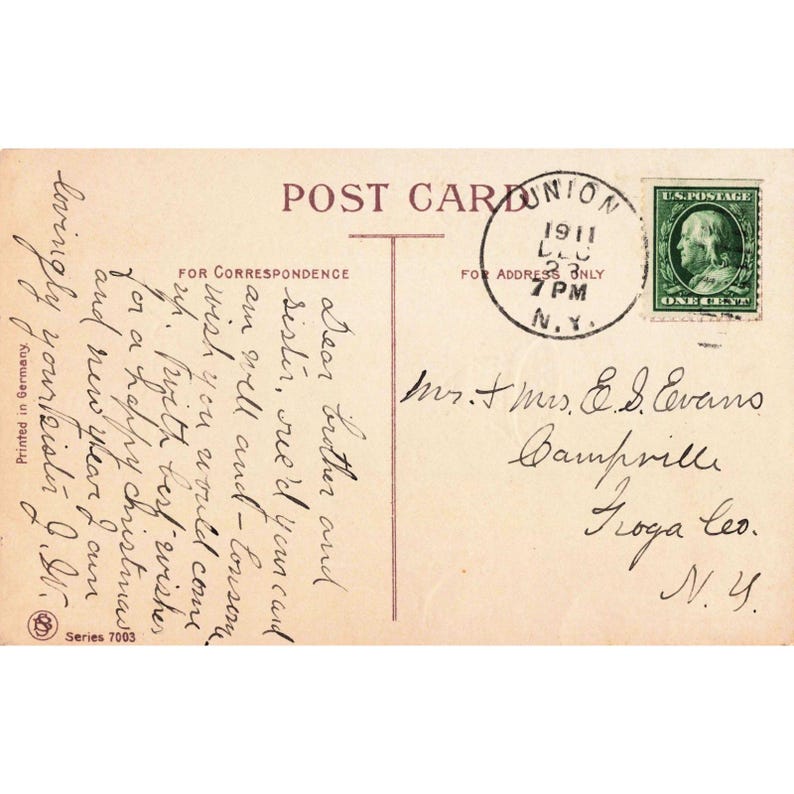 POST CARD
FOR CORRESPONDENCE
FOR ADDRESS ONLY
UNION
1911
DEC
23
7 PM
N.Y.
U.S. POSTAGE
ONE CENT
Dear brother and
sister, rec'd your card
am well and
wish you would come
up. With best wishes
for a happy christmas
and new year I am
lovingly your sister J. W.
Mr. & Mrs. E. S. Evans
Campville
Tioga Co.
N. Y.
Printed in Germany.
Series 7003